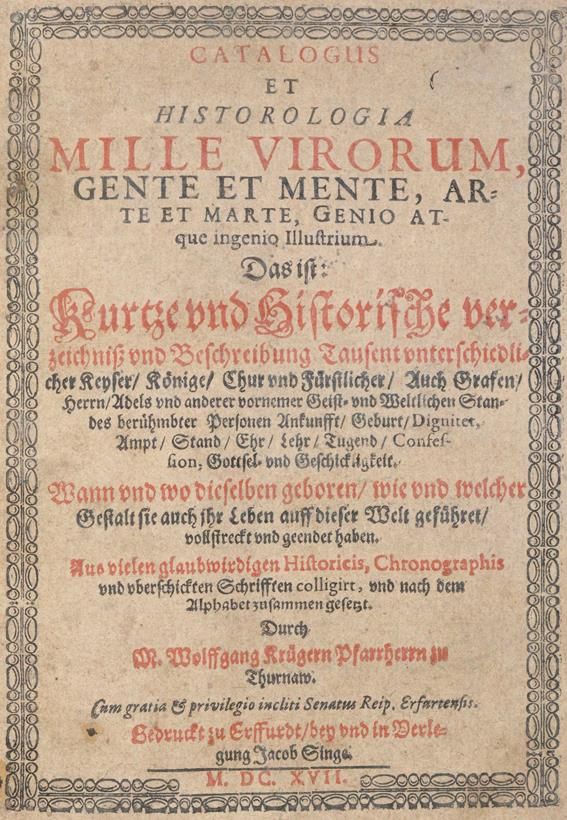 CATALOGUS
ET
HISTOROLOGIA
MILLE VIRORUM,
GENTE ET MENTE, AR-
TE ET MARTE, GENIO AT-
que ingenio Illuſtrium.
Das iſt:
Kurtze vnd Hiſtoriſche ver-
zeichniß vnd Beſchreibung Tauſent vnterſchiedli-
cher Keyſer/ Könige/ Chur vnd Fürſtlicher/ Auch Grafen/
Herrn/ Adels vnd anderer vornemer Geiſt- vnd Weltlichen Stan-
des berühmbter Perſonen Ankunfft/ Geburt/ Dignitet,
Ampt/ Stand/ Ehr/ Lehr/ Tugend/ Confeſ-
ſion, Gottſel- vnd Geſchickligkeit.
Wann vnd wo dieſelben geboren/ wie vnd welcher
Geſtalt ſie auch jhr Leben auff dieſer Welt geführet/
vollſtreckt vnd geendet haben.
Aus vielen glaubwirdigen Hiſtoricis, Chronographis
vnd vberſchickten Schrifften colligirt, vnd nach dem
Alphabet zuſammen geſetzt.
Durch
M. Wolffgang Krügern Pfarrherrn zu
Thurnaw.
Cum gratia & privilegio incliti Senatus Reip. Erfurtenſis.
Gedruckt zu Erffurdt/ bey vnd in Verle-
gung Jacob Singe.
M. DC. XVII.